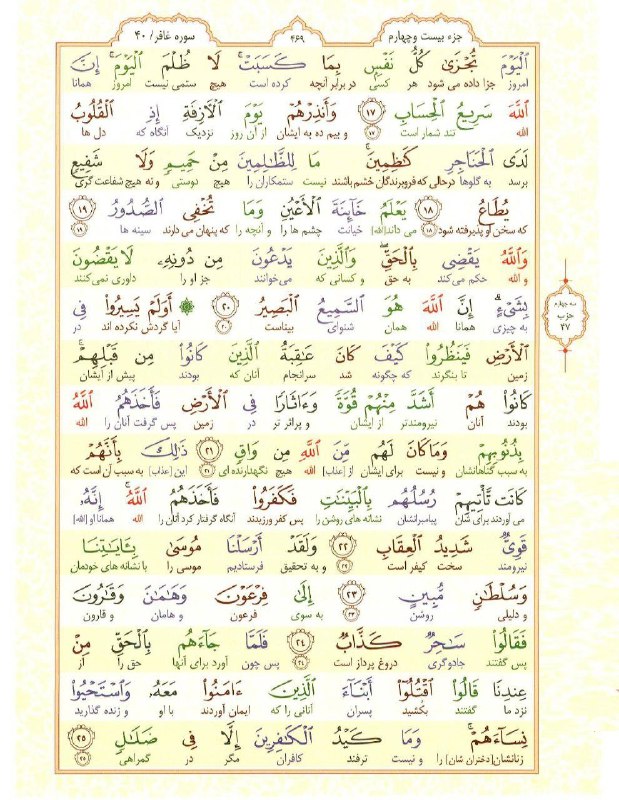 سوره غافر/ ۴۰
۴۶۹
جزء بیست و چهارم
ٱلۡيَوۡمَ تُجۡزَىٰ كُلُّ نَفۡسِۭ بِمَا كَسَبَتۡۚ لَا ظُلۡمَ ٱلۡيَوۡمَۚ إِنَّ
امروز جزا داده می شود هر کسی در برابر آنچه کرده است هیچ ستمی نیست امروز همانا
ٱللَّهَ سَرِيعُ ٱلۡحِسَابِ ١٧ وَأَنذِرۡهُمۡ يَوۡمَ ٱلۡأٓزِفَةِ إِذِ ٱلۡقُلُوبُ
الله تند شمار است ۱۷ و بیم ده به ایشان از آن روز نزدیک آنگاه که دل ها
لَدَى ٱلۡحَنَاجِرِ كَٰظِمِينَۚ مَا لِلظَّٰلِمِينَ مِنۡ حَمِيمٖ وَلَا شَفِيعٖ
برسد به گلوها درحالی که فروبرندگان خشم باشند نیست ستمکاران را هیچ دوستی و نه هیچ شفاعت گری
يُطَاعُ ١٨ يَعۡلَمُ خَآئِنَةَ ٱلۡأَعۡيُنِ وَمَا تُخۡفِي ٱلصُّدُورُ ١٩
که سخن او پذیرفته شود ۱۸ می داند[الله] خیانت چشم ها را و آنچه را که پنهان می دارند سینه ها ۱۹
وَٱللَّهُ يَقۡضِي بِٱلۡحَقِّۖ وَٱلَّذِينَ يَدۡعُونَ مِن دُونِهِۦ لَا يَقۡضُونَ
و الله حکم می کند به حق و کسانی که می خوانند جز او را داوری نمی کنند
بِشَيۡءٍۗ إِنَّ ٱللَّهَ هُوَ ٱلسَّمِيعُ ٱلۡبَصِيرُ ٢٠ ۞ أَوَلَمۡ يَسِيرُواْ فِي
به چیزی همانا الله همان شنوای بیناست ۲۰ آیا گردش نکرده اند در
سه چهارم
حزب
۴۷
ٱلۡأَرۡضِ فَيَنظُرُواْ كَيۡفَ كَانَ عَٰقِبَةُ ٱلَّذِينَ كَانُواْ مِن قَبۡلِهِمۡۚ
زمین تا بنگرند که چگونه شد سرانجام آنان که بودند پیش از ایشان
كَانُواْ هُمۡ أَشَدَّ مِنۡهُمۡ قُوَّةٗ وَءَاثَارٗا فِي ٱلۡأَرۡضِ فَأَخَذَهُمُ ٱللَّهُ
بودند آنان نیرومندتر از ایشان و پراثر تر در زمین پس گرفت آنان را الله
بِذُنُوبِهِمۡ وَمَا كَانَ لَهُم مِّنَ ٱللَّهِ مِن وَاقٖ ٢١ ذَٰلِكَ بِأَنَّهُمۡ
به سبب گناهانشان و نیست برای ایشان از [عذاب] الله هیچ نگهدارنده ای ۲۱ این [عذاب] به سبب آن است که
كَانَت تَّأۡتِيهِمۡ رُسُلُهُم بِٱلۡبَيِّنَٰتِ فَكَفَرُواْ فَأَخَذَهُمُ ٱللَّهُۚ إِنَّهُۥ
می آوردند برای شان پیامبرانشان نشانه های روشن را پس کفر ورزیدند آنگاه گرفتار کرد آنان را الله همانا او [الله]
قَوِيّٞ شَدِيدُ ٱلۡعِقَابِ ٢٢ وَلَقَدۡ أَرۡسَلۡنَا مُوسَىٰ بِـَٔايَٰتِنَا
نیرومند سخت کیفر است ۲۲ و به تحقیق فرستادیم موسی را با نشانه های خودمان
وَسُلۡطَٰنٖ مُّبِينٍ ٢٣ إِلَىٰ فِرۡعَوۡنَ وَهَٰمَٰنَ وَقَٰرُونَ
و دلیلی روشن ۲۳ به سوی فرعون و هامان و قارون
فَقَالُواْ سَٰحِرٞ كَذَّابٞ ٢٤ فَلَمَّا جَآءَهُم بِٱلۡحَقِّ مِنۡ
پس گفتند جادوگری دروغ پرداز است ۲۴ پس چون آورد برای آنها حق را از
عِندِنَا قَالُواْ ٱقۡتُلُوٓاْ أَبۡنَآءَ ٱلَّذِينَ ءَامَنُواْ مَعَهُۥ وَٱسۡتَحۡيُواْ
نزد ما گفتند بکشید پسران آنانی را که ایمان آوردند با او و زنده گذارید
نِسَآءَهُمۡۚ وَمَا كَيۡدُ ٱلۡكَٰفِرِينَ إِلَّا فِي ضَلَٰلٖ ٢٥
زنانشان [دختران شان] را و نیست ترفند کافران مگر در گمراهی ۲۵